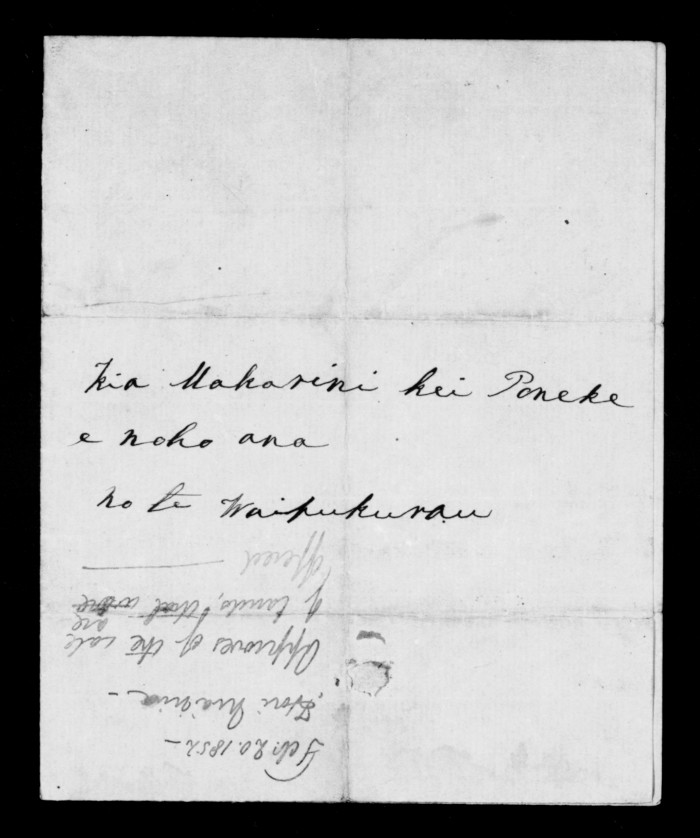 Kia Makarini kei Poneke
e noho ana
no te Waipukurau
Feb. 20. 1852 –
Hori Niania –
Approves of the sale
are
of lands, that were
offered